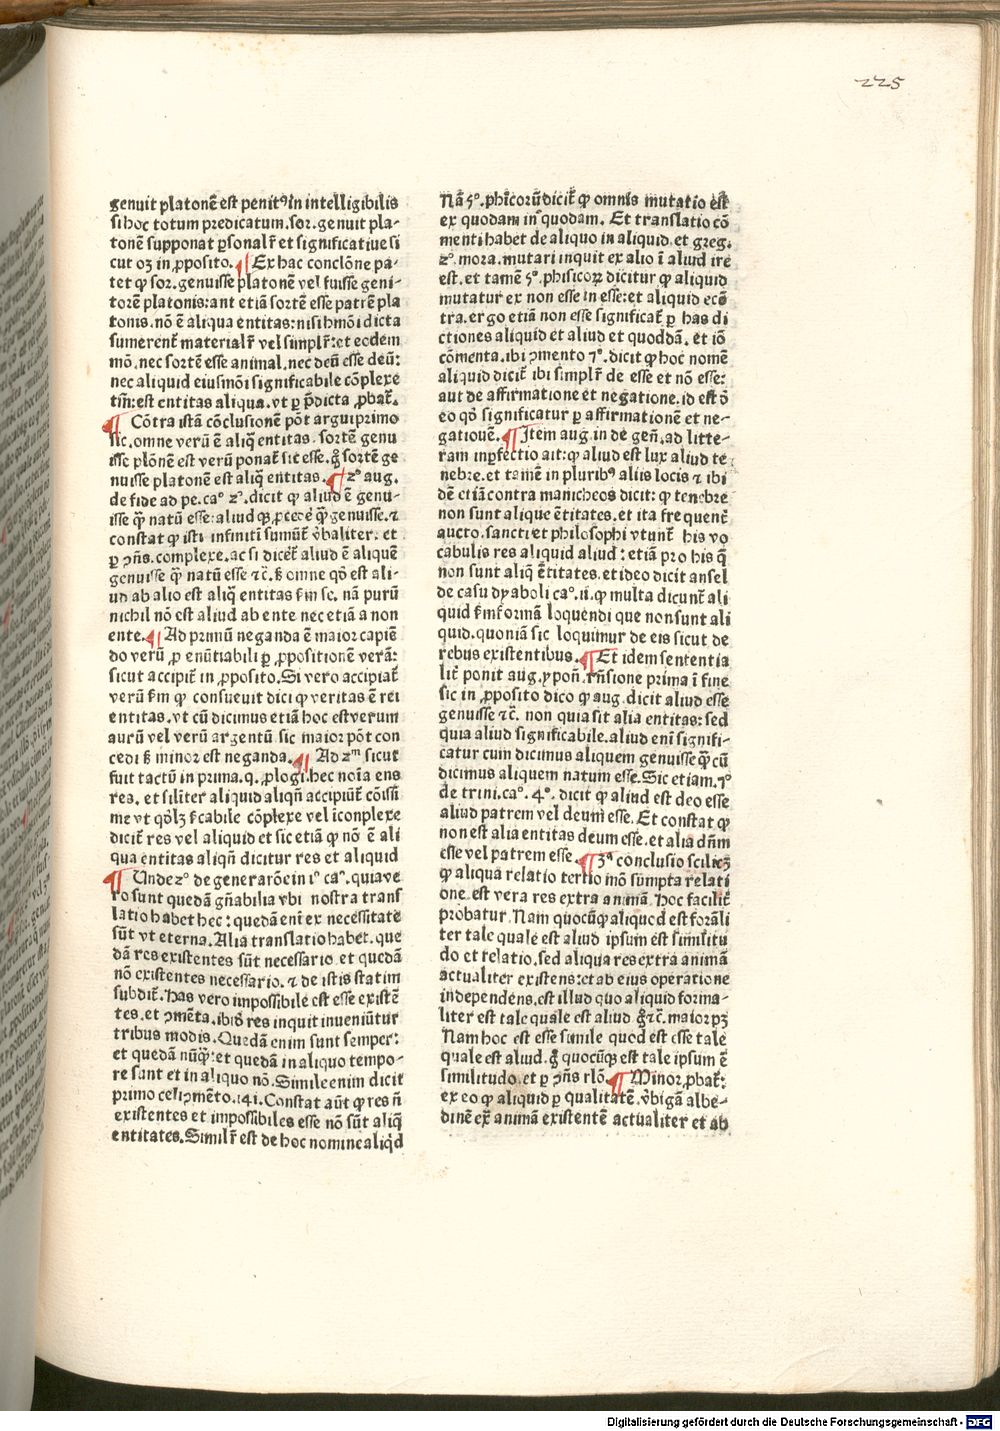 225
genuit platonē est penitꝰ in intelligibilis
si hoc totum predicatum .sor. genuit pla-
tonē supponat ꝑsonalr̄ et significatiue si
cut oꝫ in ꝓposito. ¶ Ex hac conclōne pa-
tet ꝙ sor. genuisse platonē vel fuisse geni-
torē platonis: ant etiā sortē esse patrē pla
tonis. nō ē aliqua entitas: nisi hmōi dicta
sumerent̄ materialr̄ vel simplr̄: et eodem
mō. nec sortē esse animal. nec deū esse deū:
nec aliquid eiusmōi significabile cōplexe
tm̄: est entitas aliqua. vt ꝑ p̄dicta ꝓbat̄.
¶ Cōtra istā cōclusionē pōt argui primo
sic. omne verū ē aliq̄ entitas. sortē genu
isse plōnē est verū ponat̄ sit esse. g̊ sortē ge
nuisse platonē est aliq̄ entitas. ¶ 2º aug.
de fide ad pe. caº 2º. dicit ꝙ aliud ē genu-
isse q̄ꝫ natū esse: aliud qꝫ ꝓcecē q̄ꝫ genuisse. ⁊
constat ꝙ isti infinitī sumūt̄ v̄baliter. et
ꝑ ↄn̄s. complexe. ac si dicēt̄ aliud ē aliquē
genuisse q̄ꝫ natū esse ⁊c̄. ꝭ omne qd̄ est ali-
ud ab alio est aliq̄ entitas ẜm se. nā purū
nichil nō est aliud ab ente nec etiā a non
ente. ¶ Ad primū neganda ē maior capiē
do verū ꝓ enūtiabili ꝑ ꝓpositionē verā:
sicut accipit̄ in ꝓposito. Si vero accipiat̄
verū ẜm ꝙ consueuit dici ꝙ veritas ē rei
entitas. vt cū dicimus etiā hoc est verum
aurū vel verū argentū sic maior pōt con
cedi ꝭ minor est neganda. ¶ Ad 2ᵐ sicut
fuit tactū in prima .q. ꝓlogi. hec noīa ens
res. et siliter aliquid aliqn̄ accipiūt̄ cōissi
me vt qd̄lꝫ ẜcabile cōplexe vel īconplexe
dicit̄ res vel aliquid et sic etiā ꝙ nō ē ali
qua entitas aliqn̄ dicitur res et aliquid
¶ Unde 2º de generarōe in iº caº. quia ve
ro sunt quedā gn̄abilia vbi nostra trans
latio habet hec: quedā enī ex necessitate
sūt vt eterna. Alia translatio habet. que
dā res existentes sūt necessario et quedā
nō existentes necessario. ⁊ de istis statim
subdit̄. has vero impossibile est esse existē
tes. et ↄmēta. ibid̄ res inquit inueniūtur
tribus modis. Quedā enim sunt semper:
et quedā nūꝙ̄: et quedā in aliquo tempo-
re sunt et in aliquo nō. Simile enim dicit
primo celi ↄmēto. 141. Constat aūt ꝙ res n̄
existentes et impossibiles esse nō sūt aliq̄
entitates. Similr̄ est de hoc nomine aliq̇d
Nā 5º. phīcorū dicit̄ ꝙ omnis mutatio est
ex quodam in quodam. Et translatio cō
menti habet de aliquo in aliquid et greg.
2º. mora. mutari inquit ex alio ī aliud ire
est. et tamē 5º. phisicoꝝ dicitur ꝙ aliquid
mutatur ex non esse in esse: et aliquid ecō
tra. ergo etiā non esse significat̄ ꝑ has di
ctiones aliquid et aliud et quoddā. et iō
cōmenta. ibi ↄmento 7º. dicit ꝙ hoc nomē
aliquid dicit̄ ibi simplr̄ de esse et nō esse:
aut de affirmatione et negatione. id est ð
eo qd̄ significatur ꝑ affirmationē et ne-
gationē. ¶ Item aug. in de gen̄. ad litte-
ram inꝑfectio ait: ꝙ aliud est lux aliud te
nebre. et tamē in pluribꝰ aliis locis ⁊ ibi
dē etiā contra manicheos dicit: ꝙ tenebre
non sunt alique ētitates. et ita frequent̄
aucto. sancti et philosophi vtunt̄ his vo
cabulis res aliquid aliud: etiā pro his q̄
non sunt aliq̄ ētitates. et ideo dicit ansel
de casu dyaboli caº. ii. ꝙ multa dicunt̄ ali
quid ẜm formā loquendi que non sunt ali
quid. quoniā sic loquimur de eis sicut de
rebus existentibus. ¶ Et idem sententia
lit̄ ponit aug. ypon̄. rn̄sione prima ī fine
sic in ꝓposito dico ꝙ aug. dicit aliud esse
genuisse ⁊c̄. non quia sit alia entitas: sed
quia aliud significabile. aliud enī signifi-
catur cum dicimus aliquem genuisse q̄ꝫ cū
dicimus aliquem natum esse. Sic etiam. 7º
de trini. caº. 4º. dicit ꝙ aliud est deo esse
aliud patrem vel deum esse. Et constat ꝙ
non est alia entitas deum esse. et alia dn̄m
esse vel patrem esse. ¶ 3ª conclusio scilicꝫ
ꝙ aliqua relatio tertio mō sumpta relati
one. est vera res extra animā. hoc facilit̄
probatur. Nam quocūꝙ aliquod est forāli
ter tale quale est aliud ipsum est similitu
do et relatio. sed aliqua res extra animā
actualiter existens: et ab eius operatione
independens. est illud quo aliquid forma-
liter est tale quale est aliud g̊ ⁊c̄. maior pꝫ
Nam hoc est esse simile quod est esse tale
quale est aliud. g̊ quocūqꝫ est tale ipsum ē
similitudo. et ꝑ ↄn̄s rlō. ¶ Minor ꝓbat̄:
ex eo ꝙ aliquid ꝑ qualitatē. v̄bi gā albe-
dinē ex̄ animā existentē actualiter et ab
Digitalisierung gefördert durch die Deutsche Forschungsgemeinschaft - DFG